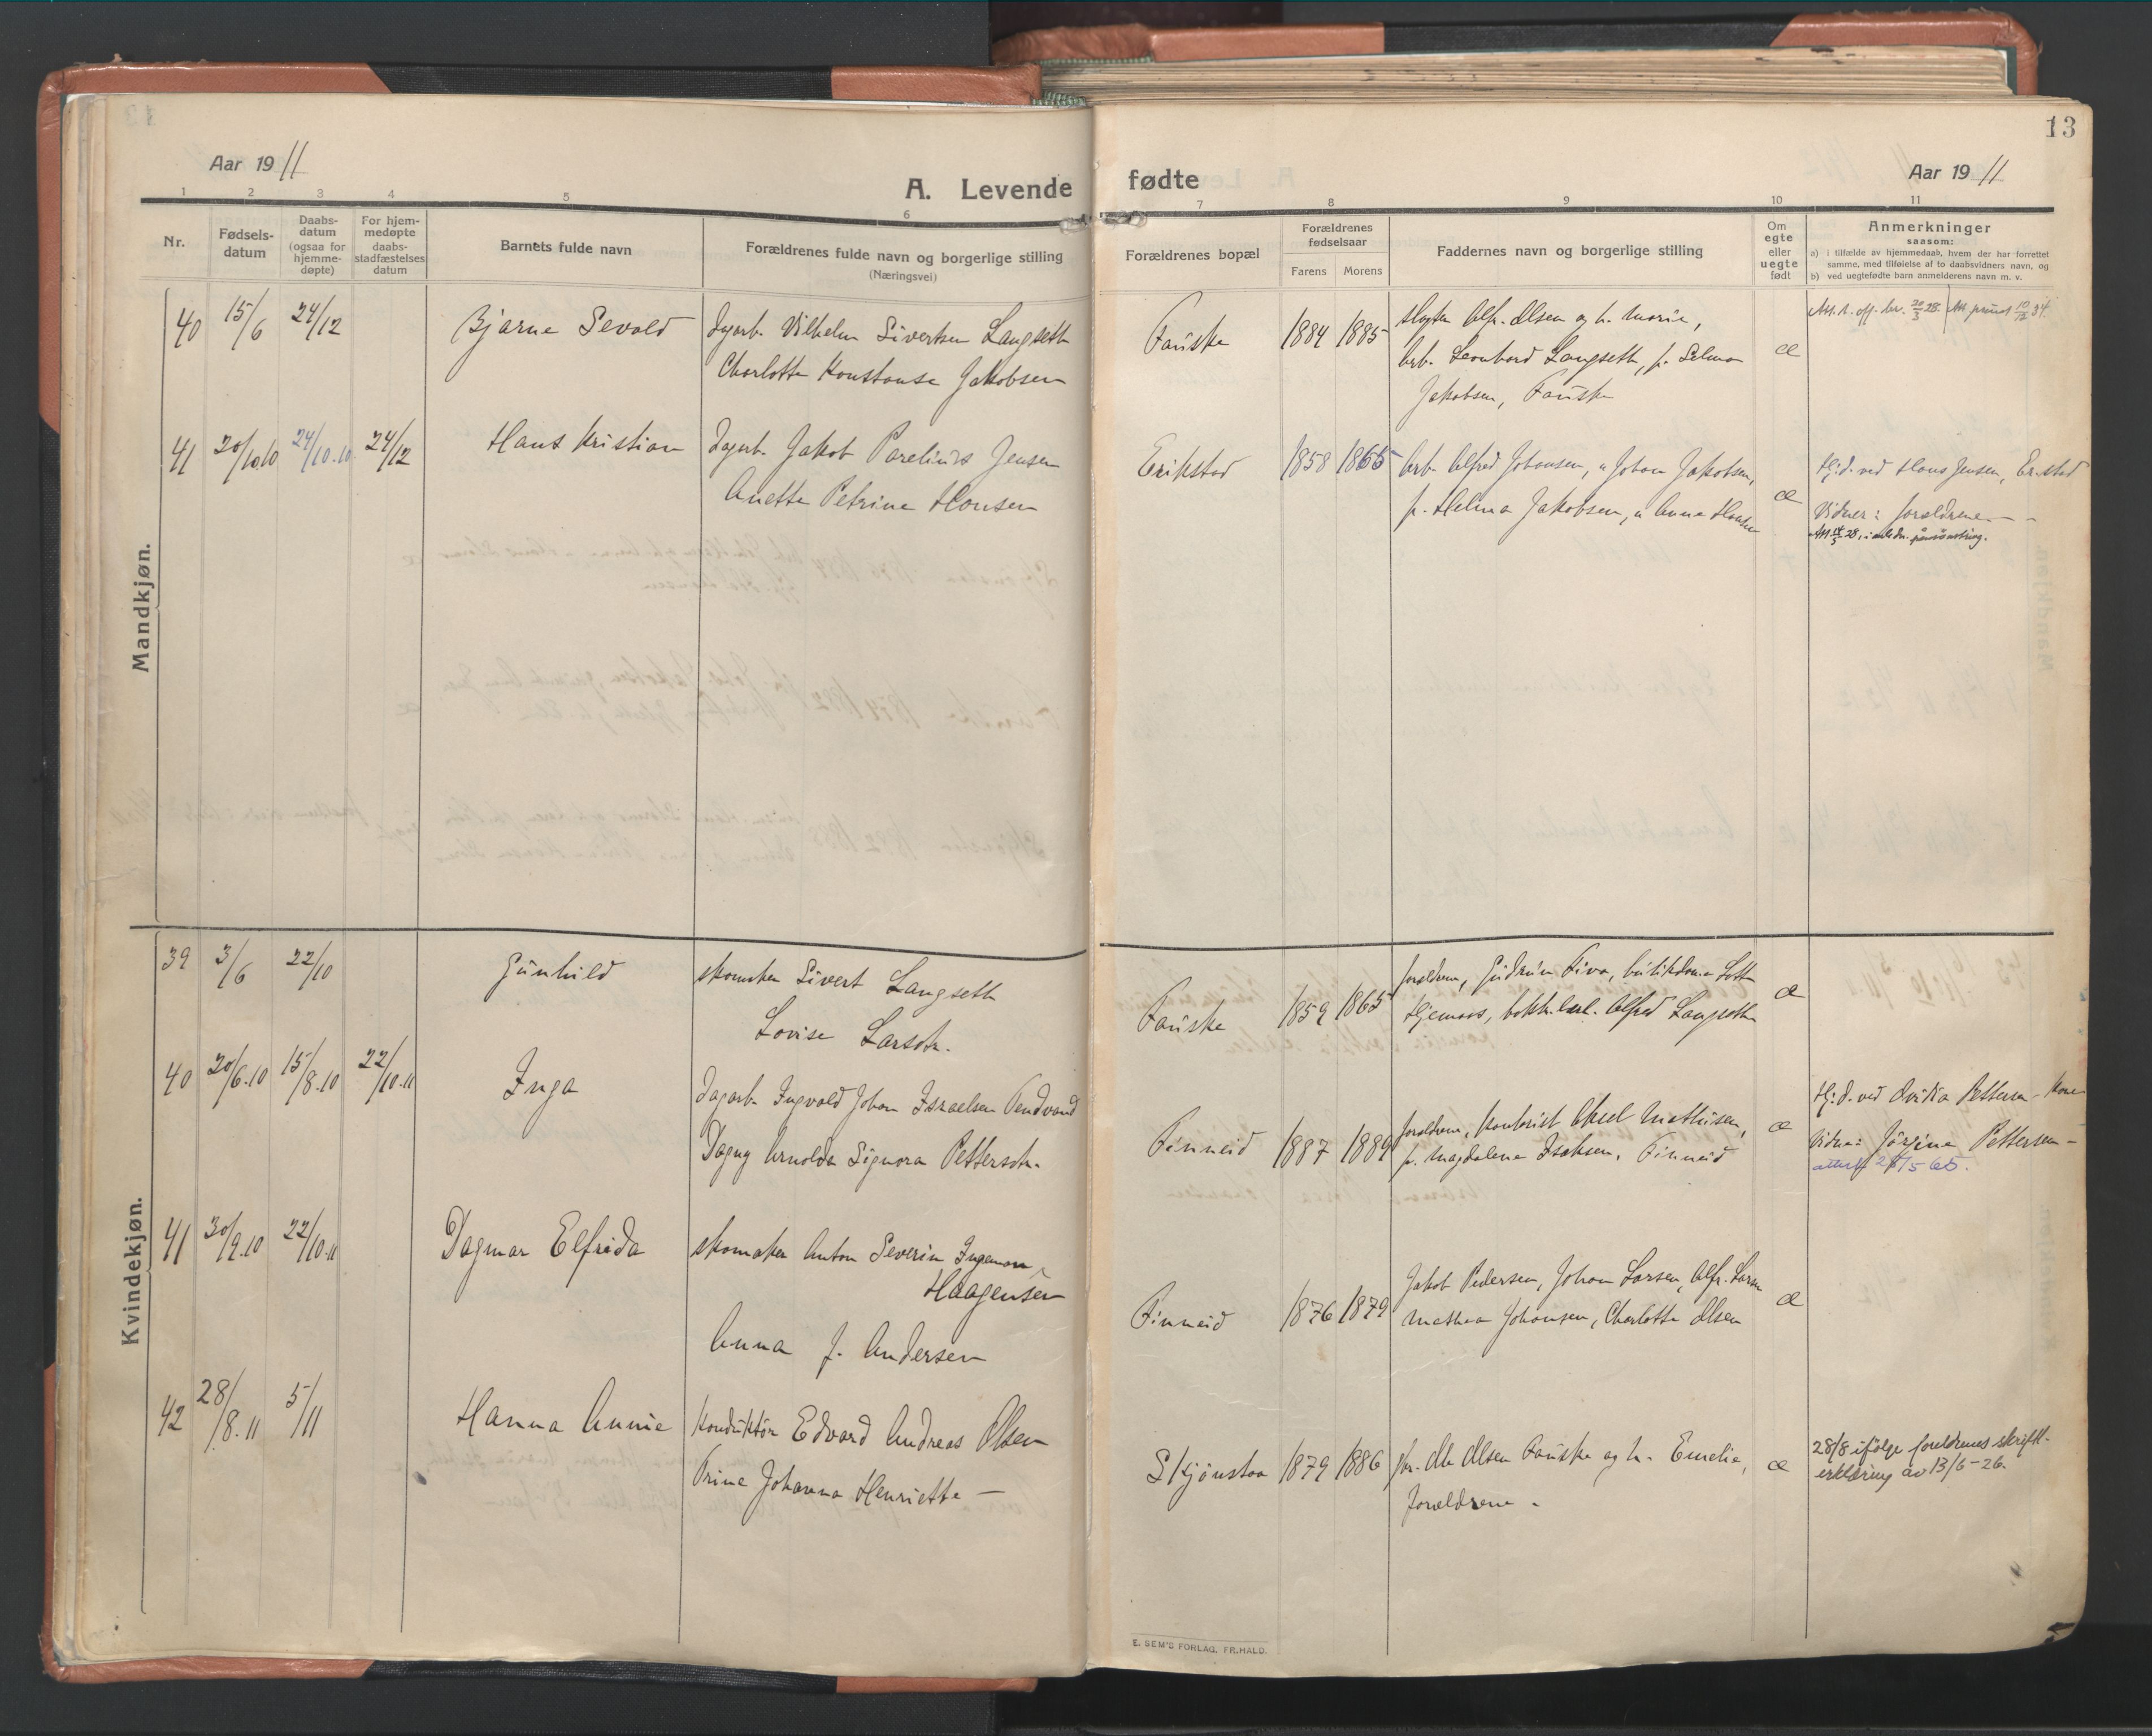 13
Aar 1911
A. Levende fødte
Aar 1911
1 2 3 4 5 6 7 8 9 10 11
Nr.
Fødsels-
datum
Daabs-
datum
(ogsaa for
hjemme-
døpte)
For hjem-
medøpte
daabs-
stadfæstelses
datum
Barnets fulde navn
Forældrenes fulde navn og borgerlige stilling
(Næringsvei)
Forældrenes bopæl
Forældrenes
fødselsaar
Farens Morens
Faddernes navn og borgerlige stilling
Om
egte
eller
uegte
født
Anmerkninger
saasom:
a) i tilfælde av hjemmedaab, hvem der har forrettet
samme, med tilføielse af to daabsvidners navn, og
b) ved uegtefødte barn anmelderens navn m. v.
Mandkjøn.
40 15/6 24/12 Bjarne Sevald
Dagarb. Vilhelm Sivertsen Langseth
Charlotte Konstanse Jakobsen
Fauske 1884 1885
Alfr. Olsen og h. Marie,
Arb. Leonhard Langseth, p. Selma
Jakobsen, Fauske
æ
41 20/10.10 24/10.10 24/12 Hans Kristian
Dagarb. Jakob Parelius Jensen
Anette Petrine Hansen
Erikstad 1858 1865
Arb. Alfred Johansen, " Johan Jakobsen,
p. Helma Jakobsen, " Anna Hansen
æ
Hj.d. ved Hans Jensen, Er.stad
Vidner: forældrene
Kvindekjøn.
39 3/6 22/10 Gunhild
skomaker Sivert Langseth
Lovise Larsdtr.
Fauske 1859 1865
forældrene, Gudrun Siva, butikdame Lotte
Hjemaas, Alfred Langseth
æ
40 20/6.10 15/8.10 22/10.11 Inga
Dagarb. Ingvald Johan Israelsen Tendvand
Dagny Arnolda Signora Pettersdtr.
Finneid 1887 1889
forældrene, kontorist Aksel Mathisen,
p. Magdalene Isaksen, Finneid
æ
Hj.d. ved Ovidia Pettersen - kone
Vidne: Jørgine Pettersen -
41 30/9.10 22/10.11 Dagmar Elfrida
skomaker Anton Severin Ingemann
Haagensen
Anna J. Andersen
Finneid 1876 1879
Jakob Pedersen, Johan Larsen, Alfr. Larsen
Mathea Johansen, Charlotte Olsen
æ
42 28/8.11 5/11 Hanna Annie
Konduktør Edvard Andreas Olsen
Trine Johanna Henriette —
Skjönstaa 1879 1886
Ole Olsen Fauske og h. Emelie,
forældrene.
æ
28/8 ifølge foreldrenes skriftl.
erklæring av 13/6-26.
E. SEM'S FORLAG, FR.HALD.